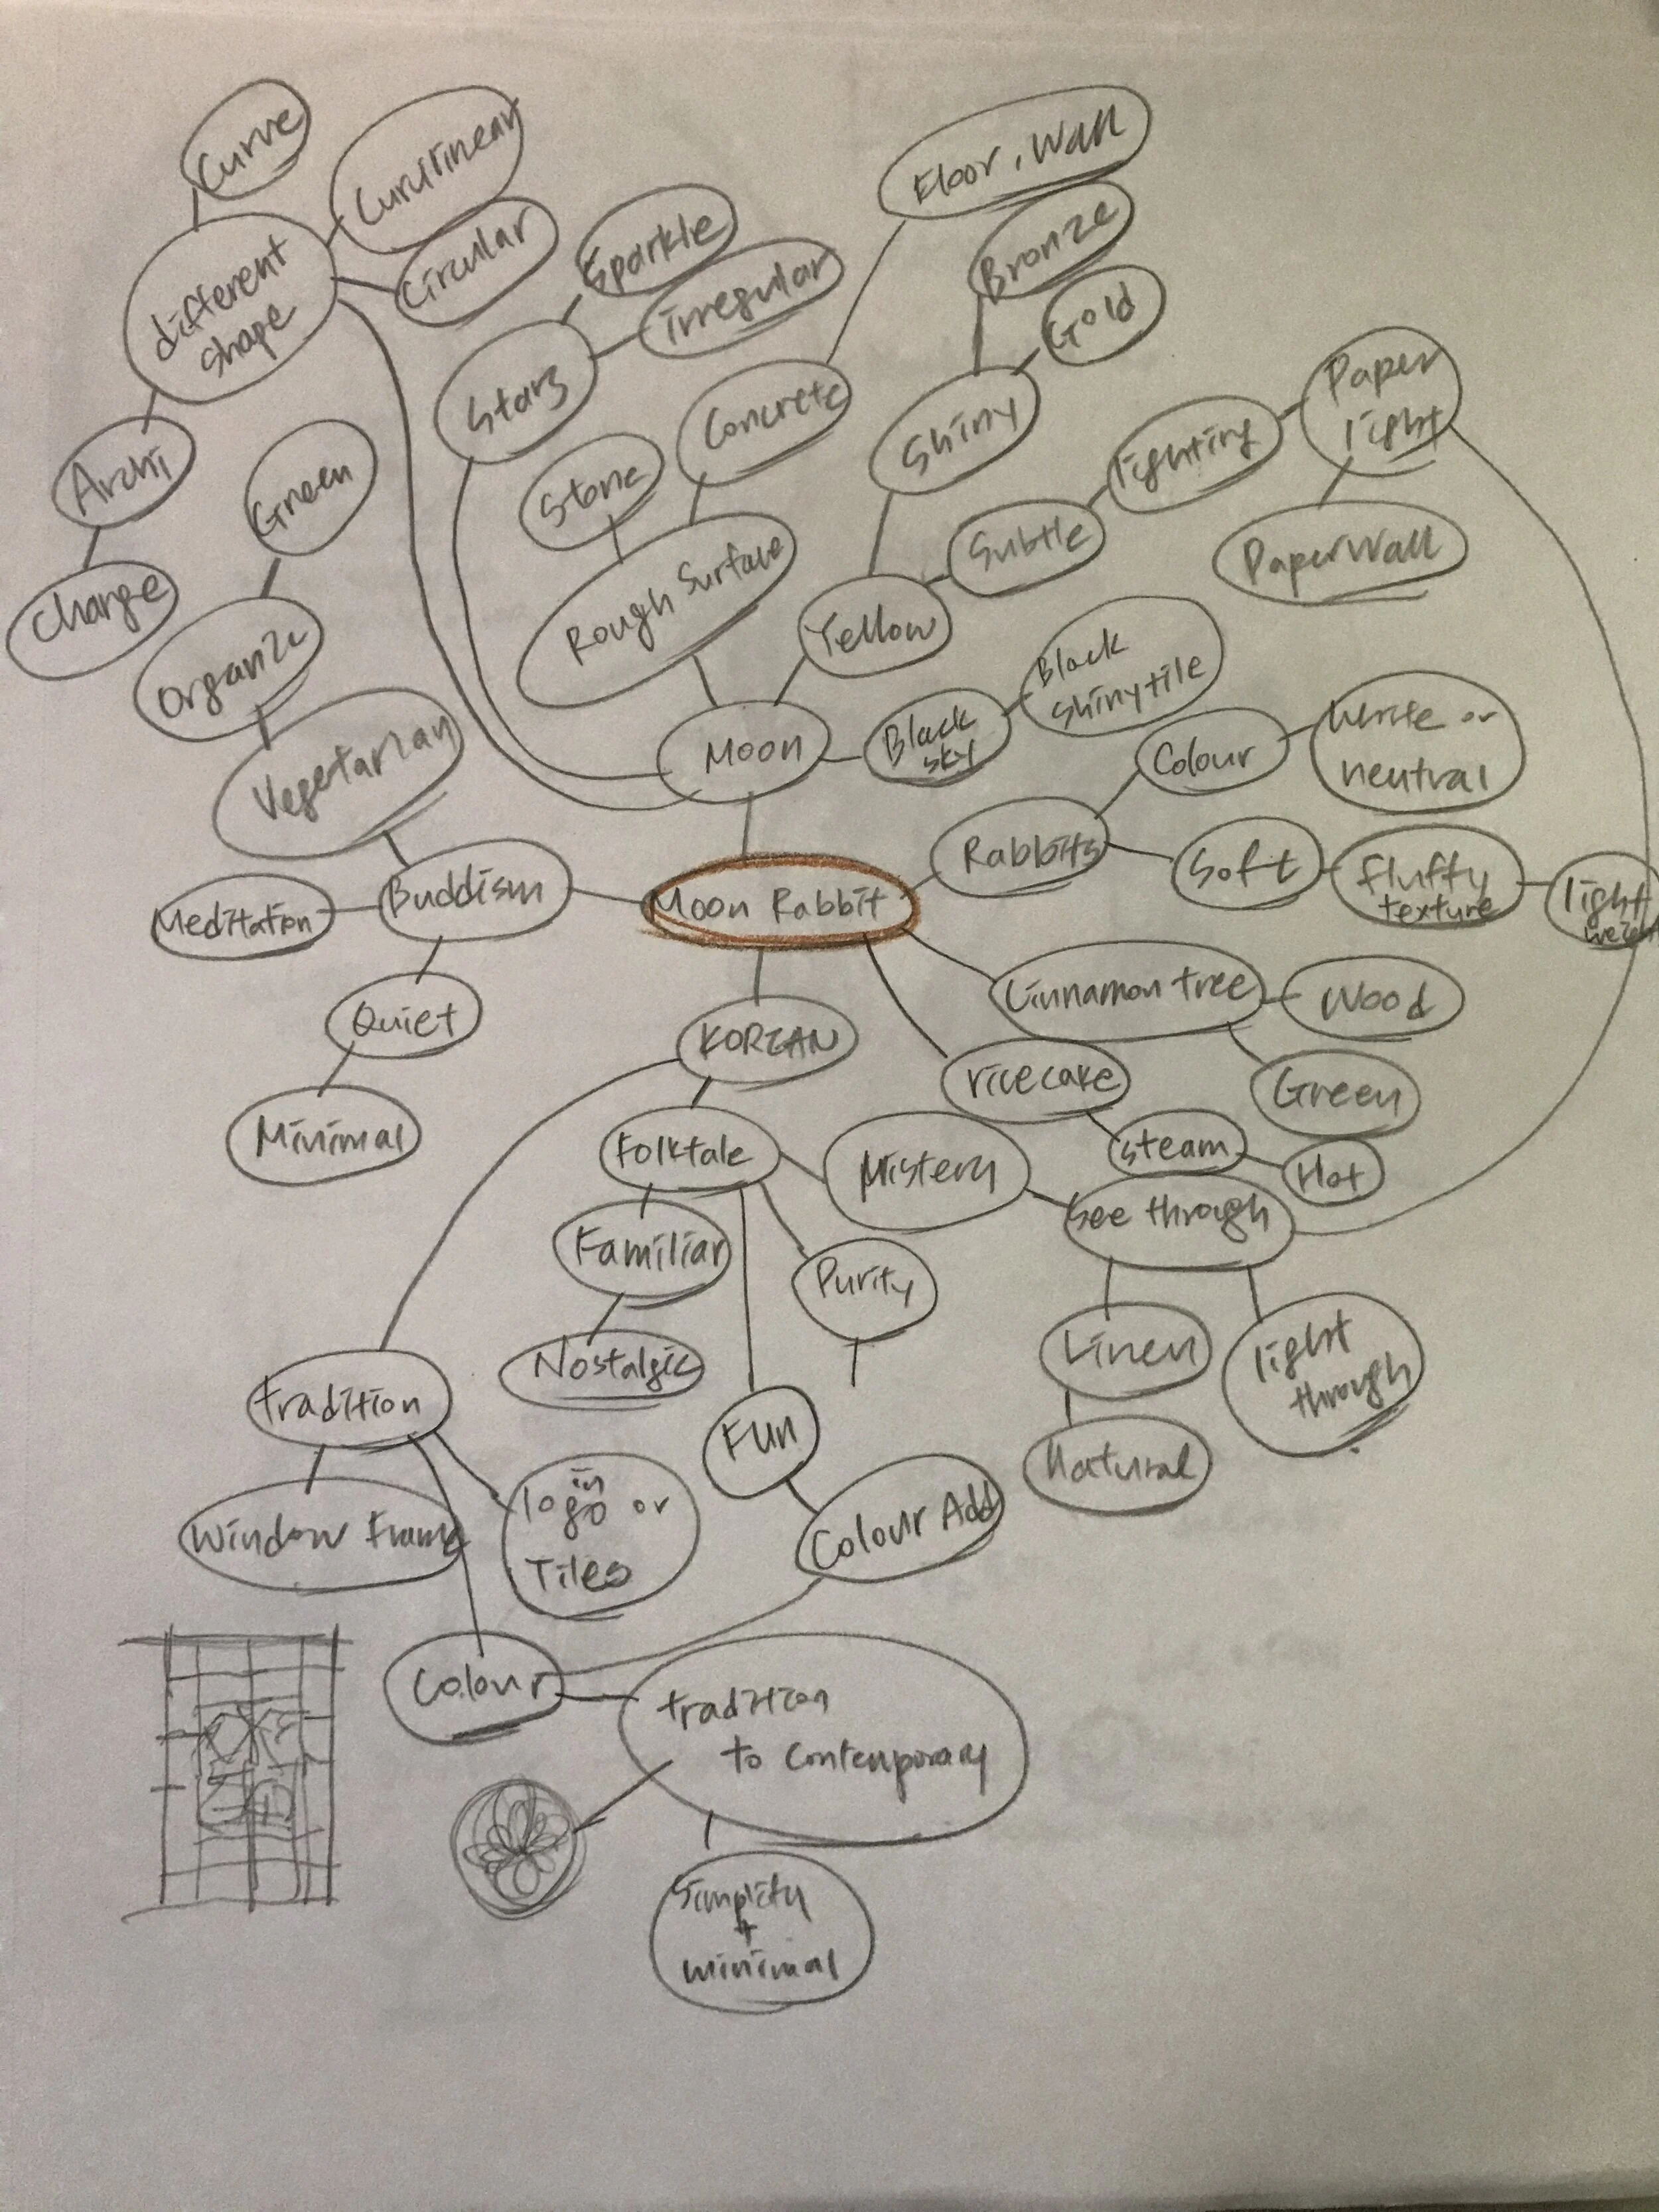 Curve
Curvilinear
Circular
different
shape
Archi
Change
Sparkle
irregular
Stars
Floor, Wall
Concrete
Stone
Rough Surface
Bronze
Gold
Shiny
Paper
light
lighting
Subtle
Paper Wall
Yellow
Green
Organize
Vegetarian
Moon
Black
sky
Black
shiny tile
Colour
White or
neutral
Rabbits
Soft
fluffy
texture
light
Meditation
Buddism
Moon Rabbit
Quiet
Minimal
KOREAN
Cinnamon tree
Wood
Green
rice cake
steam
Hot
Folktale
Mistery
See through
Familiar
Purity
Nostalgic
Linen
light
through
Natural
tradition
FUN
Window Frame
in
logo or
Tiles
Colour Add
Colour
tradition
to Contemporary
Simplity
+
minimal